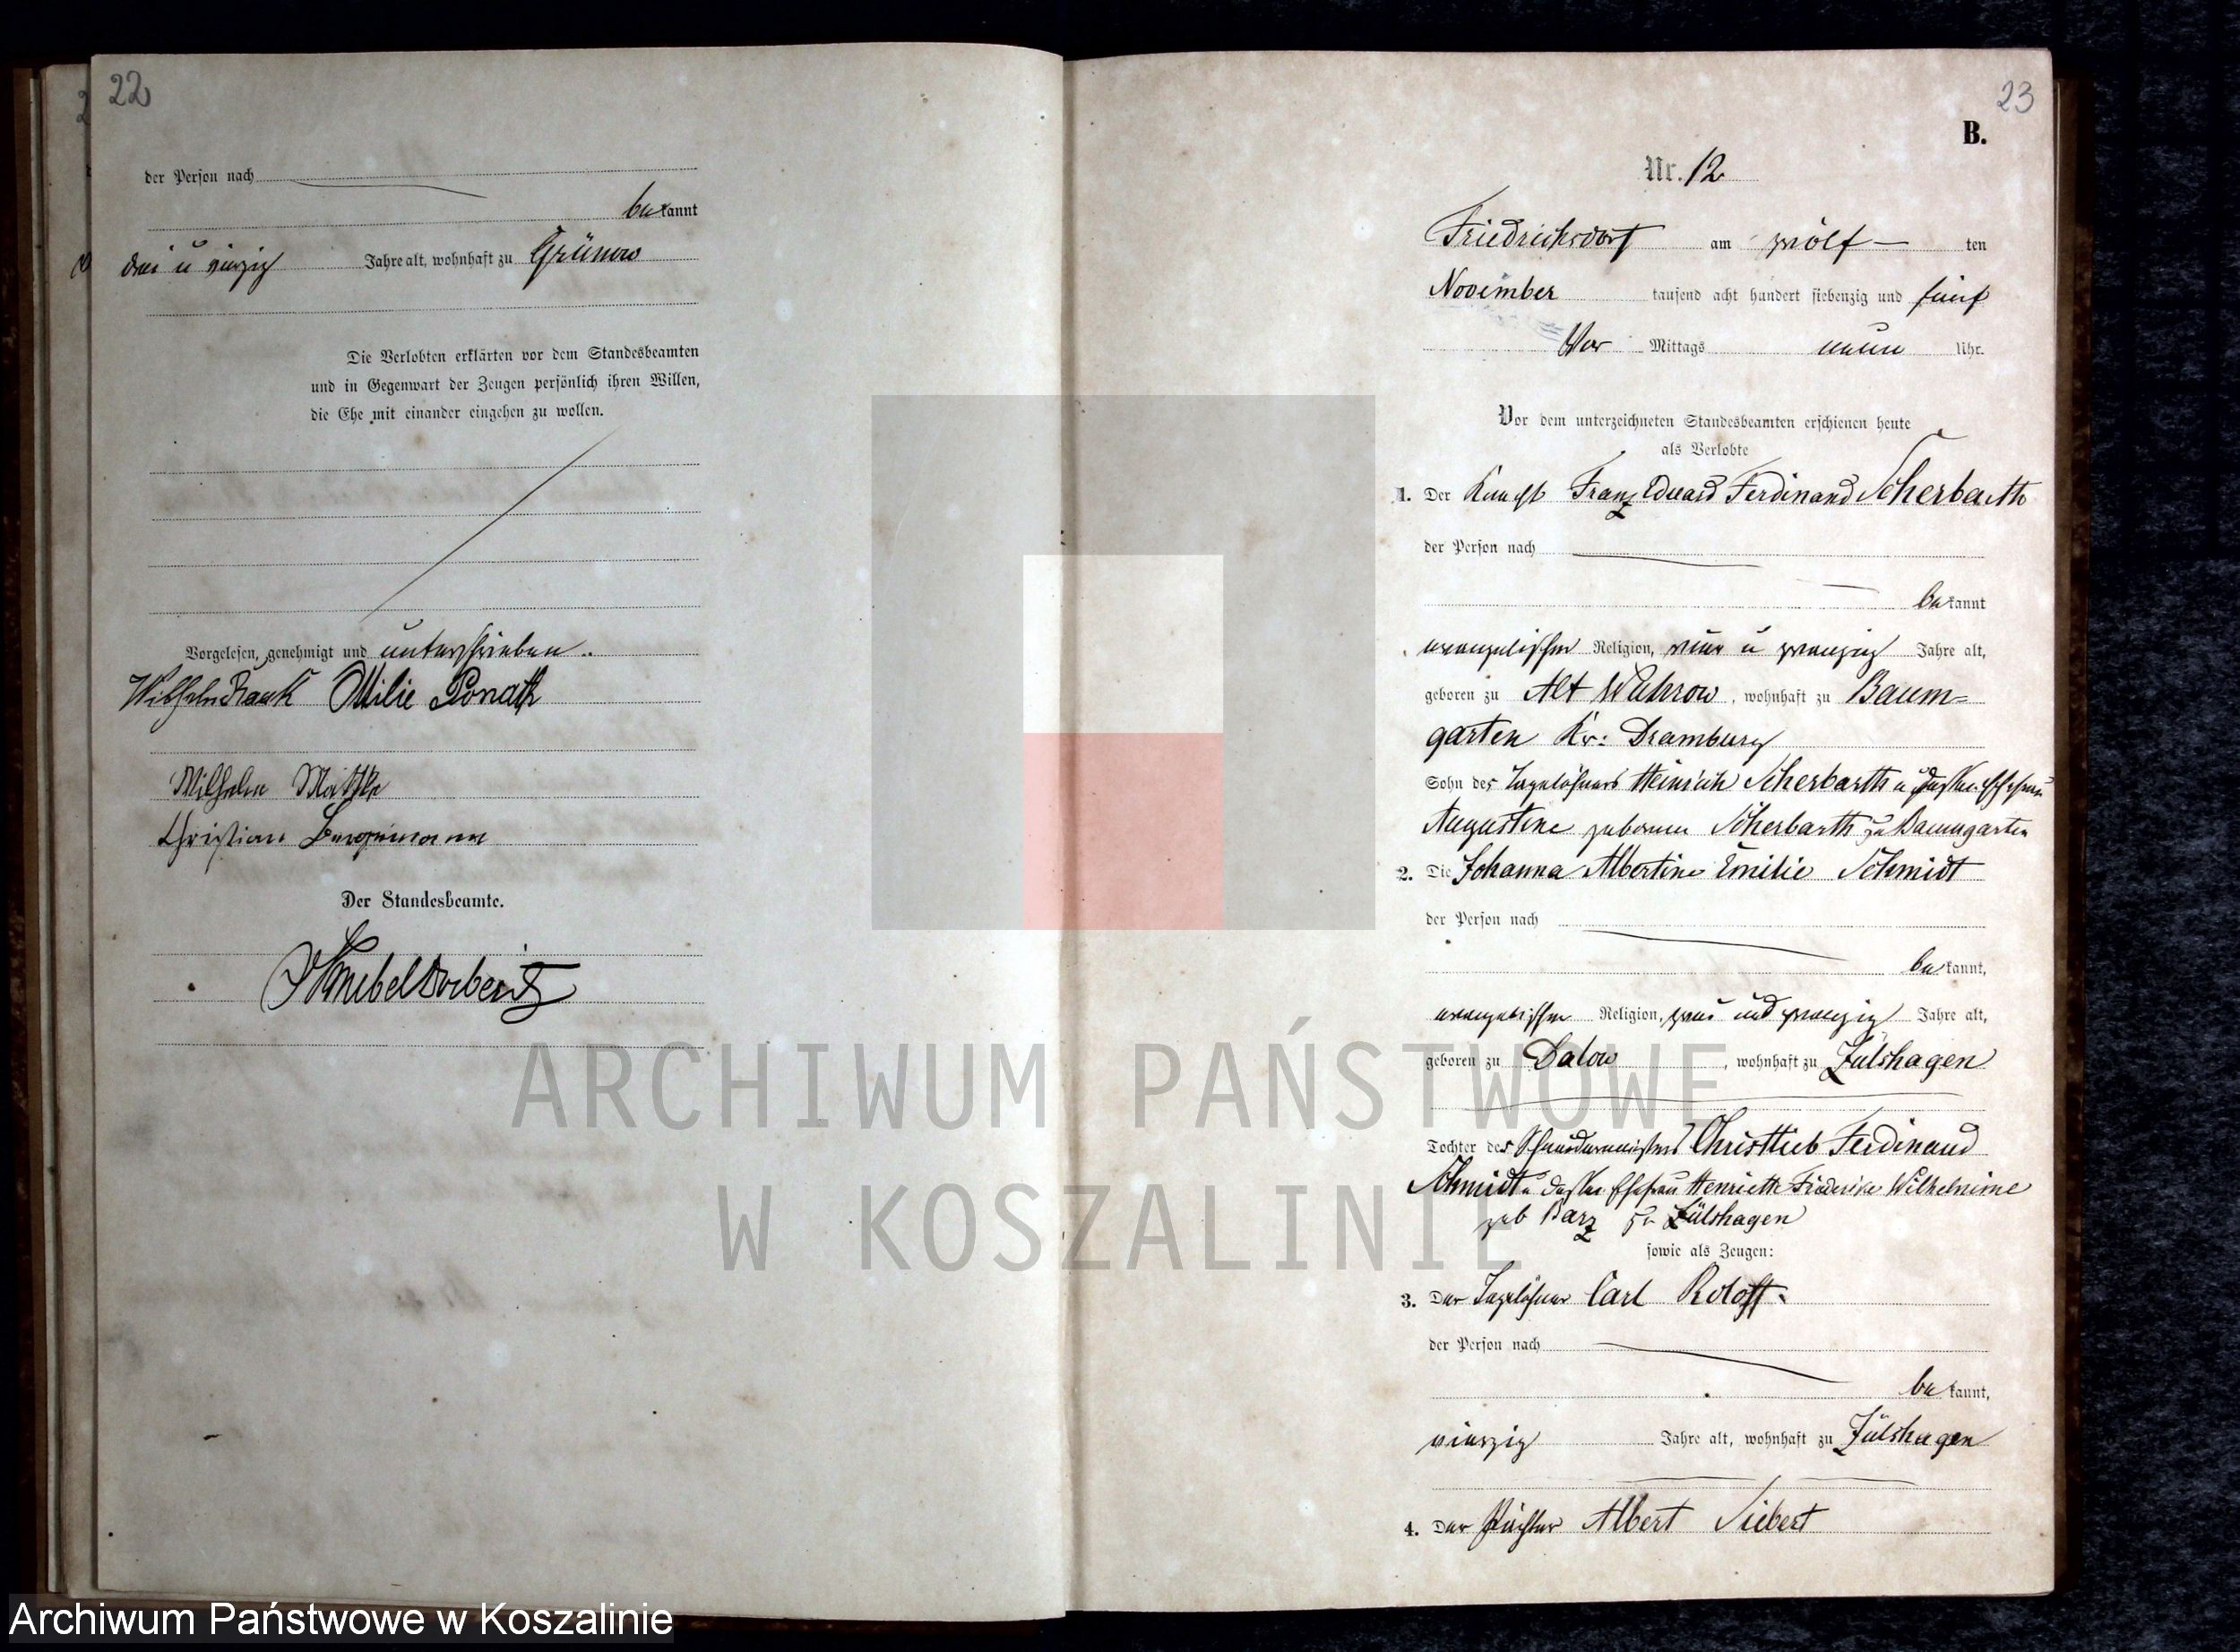 22
der Person nach
bekannt
drei u vierzig Jahre alt, wohnhaft zu Grünow
Die Verlobten erklärten vor dem Standesbeamten
und in Gegenwart der Zeugen persönlich ihren Willen,
die Ehe mit einander eingehen zu wollen.
Vorgelesen, genehmigt und unterschrieben.
Wilhelm Ottilie Ponath
Wilhelm
Christian
Der Standesbeamte.
23
B.
Nr. 12
Friedrichsdorf am zwölf ten
November tausend acht hundert siebenzig und fünf
Vor Mittags neun Uhr.
Vor dem unterzeichneten Standesbeamten erschienen heute
als Verlobte
1. Der Knecht Franz Eduard Ferdinand Scherbarth
der Person nach
bekannt
evangelischer Religion, vier u zwanzig Jahre alt,
geboren zu Alt Wuhrow, wohnhaft zu Baum=
garten Kr: Dramburg
Sohn des Tagelöhners Heinrich Scherbarth u dessen Ehefrau
Augustine geborenen Scherbarth zu Baumgarten
2. Die Johanna Albertine Emilie Schmidt
der Person nach
bekannt,
evangelischer Religion, zwei und zwanzig Jahre alt,
geboren zu Dalow, wohnhaft zu Zülshagen
Tochter des Schneidermeisters Christlieb Ferdinand
Schmidt u dessen Ehefrau Henriette Friederike Wilhelmine
geb Barz zu Zülshagen
sowie als Zeugen:
3. Der Tagelöhner Carl Roloff.
der Person nach
bekannt,
vierzig Jahre alt, wohnhaft zu Zülshagen
4. Der Pächter Albert Siebert
ARCHIWUM PAŃSTWOWE
W KOSZALINIE
Archiwum Państwowe w Koszalinie